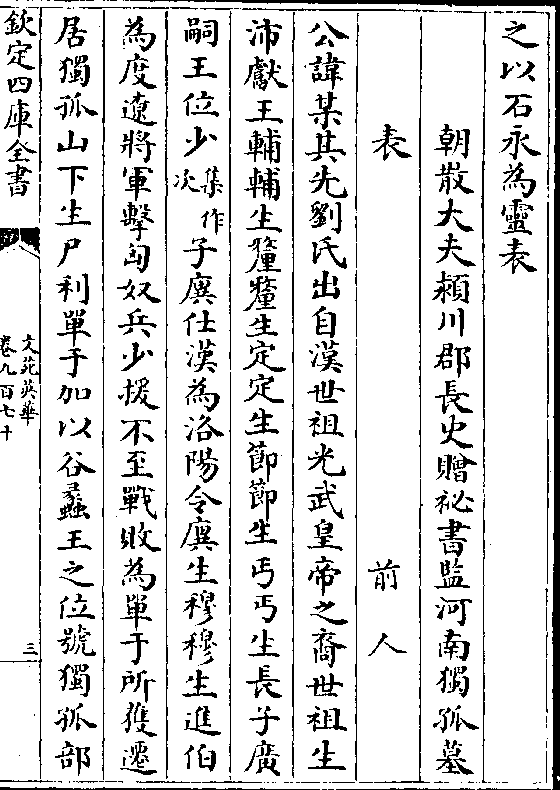 之以石永為靈表
朝散大夫潁川郡長史贈祕書監河南獨孤墓
表 前人
公諱某其先劉氏出自漢世祖光武皇帝之裔世祖生
沛獻王輔輔生釐釐生定定生節節生丐丐生長子廣
嗣王位少集作次子廙仕漢為洛陽令廙生穆穆生進伯
為度遼將軍擊匈奴兵少援不至戰敗為單于所獲遷
居獨孤山下生尸利單于加以谷蠡王之位號獨孤部
欽定四庫全書
文苑英華
卷九百七十
三